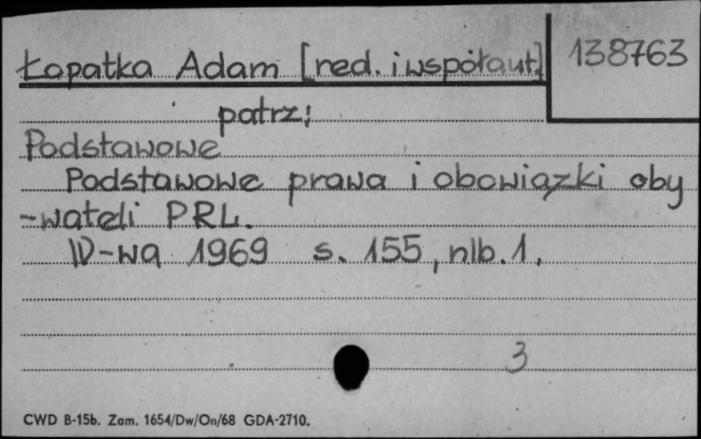 Łopatka Adam [red. i współaut.] 138763
patrz:
Podstawowe
Podstawowe prawa i obowiązki oby
-wateli PRL.
W-wa 1969 s. 155, nlb. 1.
3
CWD B-15b. Zam. 1654/Dw/On/68 GDA-2710.